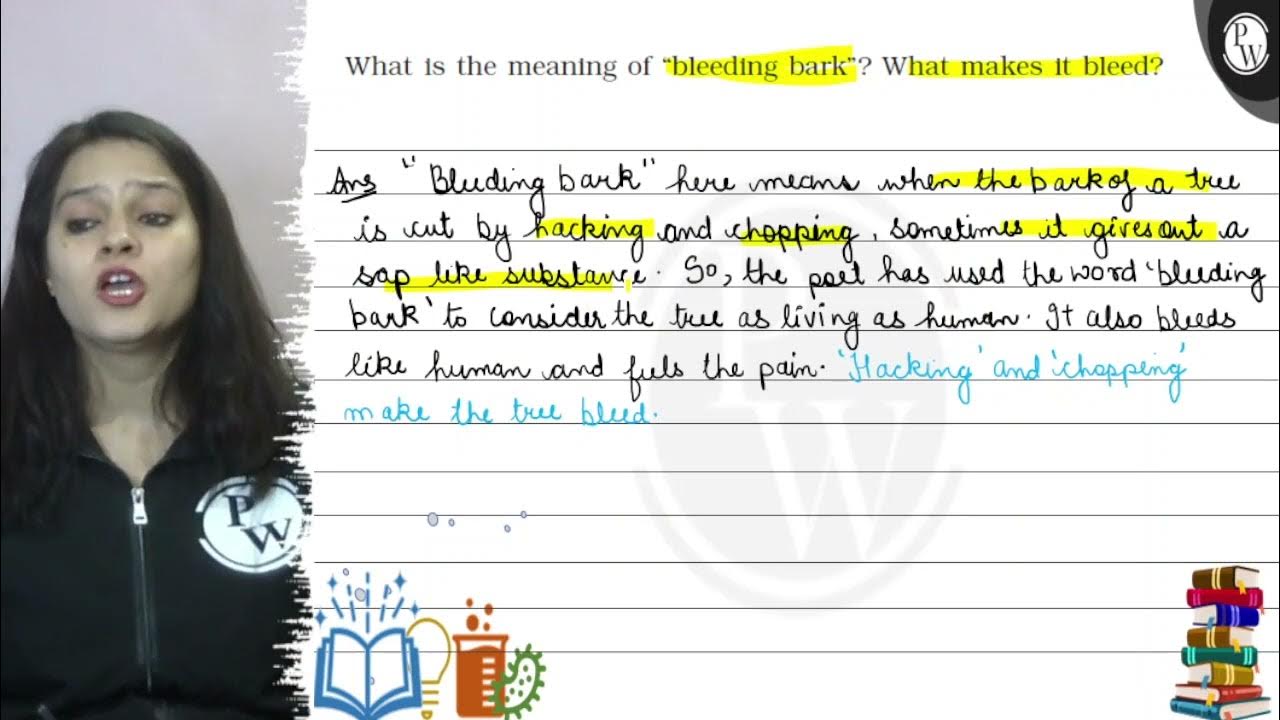 What is the meaning of “bleeding bark”? What makes it bleed?
PW
Ans "Bleeding bark" here means when the bark of a tree
is cut by hacking and chopping, sometimes it gives out a
sap like substance. So, the poet has used the word 'bleeding
bark' to consider the tree as living as human. It also bleeds
like human and feels the pain. 'Hacking' and 'chopping'
make the tree bleed.
PW
PW